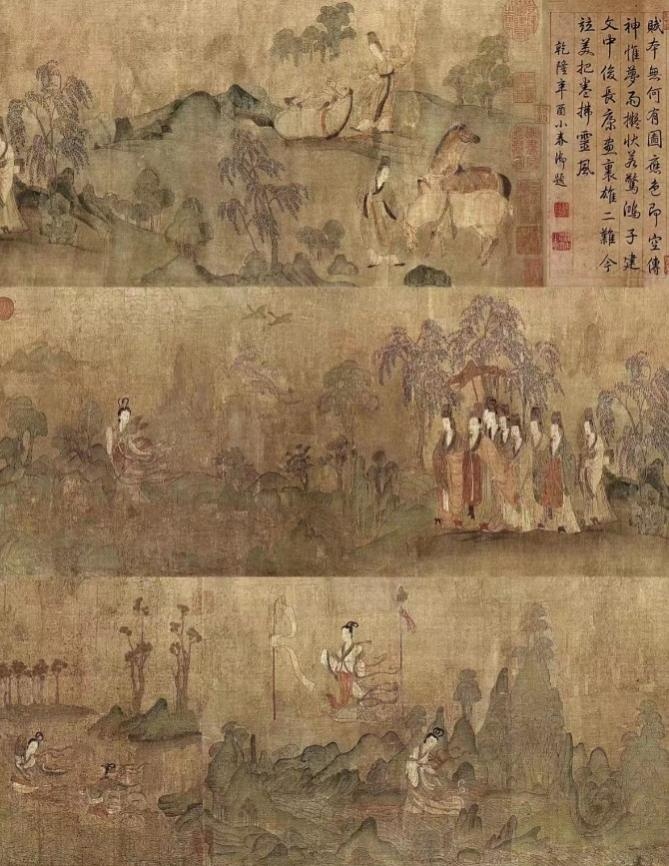 賦本無何有圖應色即空傳
神惟夢雨擬狀若驚鴻子建
文中俊長康畫裏雄二難今
竝美把卷拂靈風
乾隆辛酉小春御題